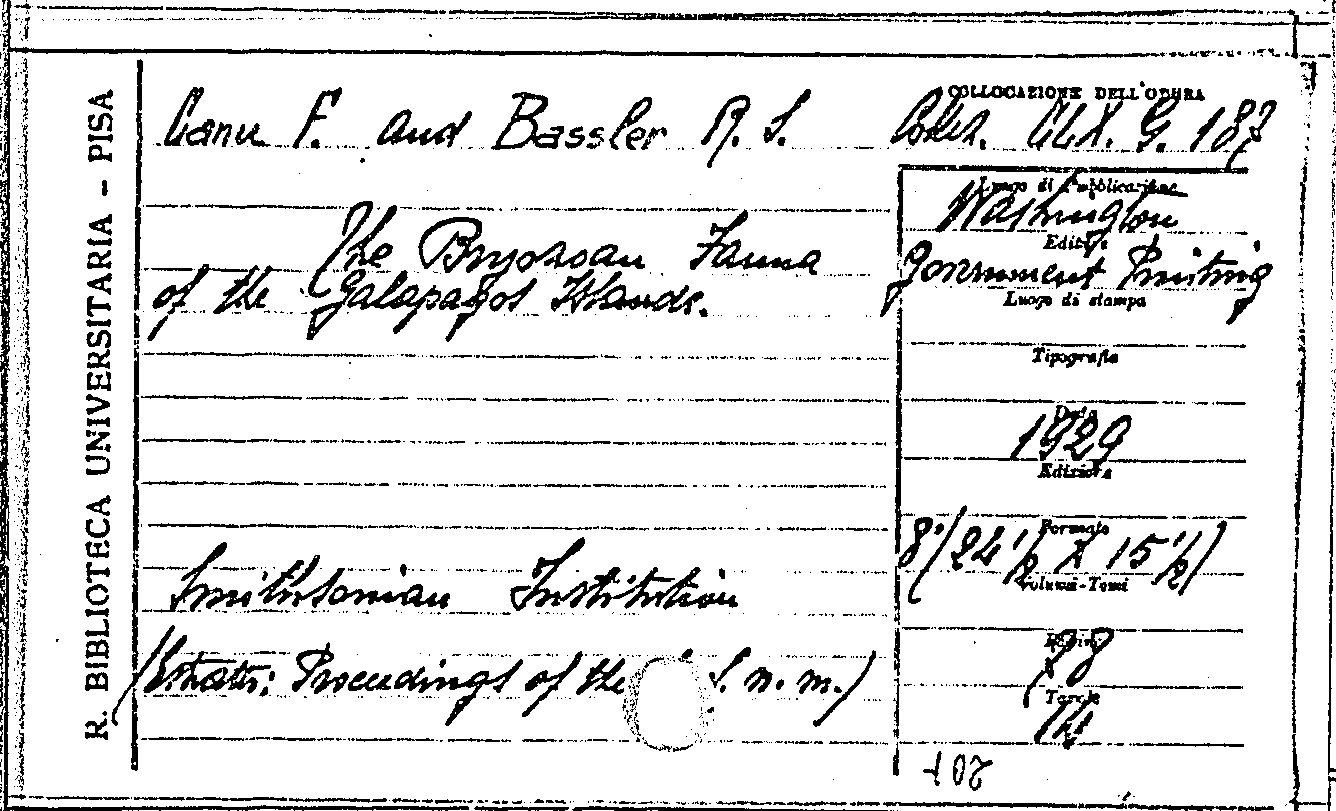 R. BIBLIOTECA UNIVERSITARIA - PISA
COLLOCAZIONE DELL'OPERA
Canu F. and Bassler R. S.
CLX. G. 187
The Bryozoan Fauna
of the Galapagos Islands.
Luogo di Pubblicazione
Washington
Editore
Government Printing
Luogo di stampa
Tipografia
Data
1929
Edizione
Formato
8° (24 1/2 X 15 1/2)
Volumi-Tomi
Smithsonian Institution
(Estratto: Proceedings of the S. n. m.)
Tavole
14